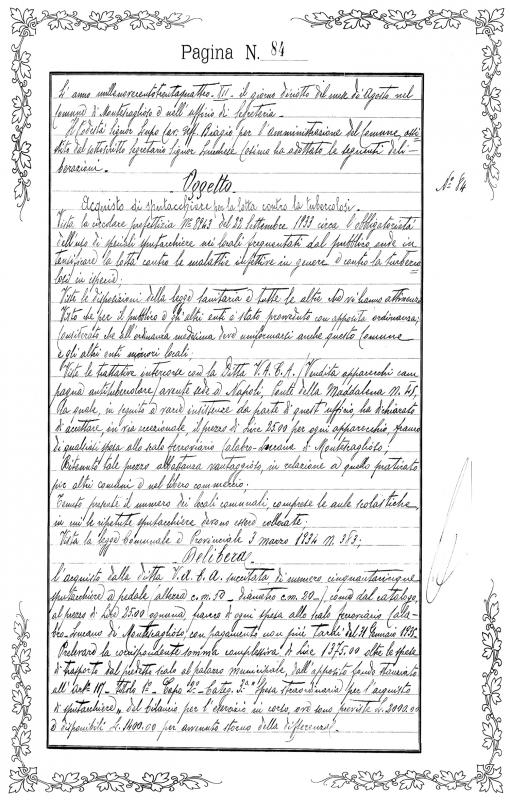 Pagina N. 84
L'anno millenovecentotrentaquattro. XII - il giorno diciotto del mese di Agosto nel
Comune di Montescaglioso e nell'ufficio di Segreteria.
Il Podestà Signor Lupo Cav. Uff. Biagio per l'amministrazione del Comune assi=
stito dal sottoscritto Segretario Signor Cosimo ha adottato le seguenti deli=
berazioni.
Oggetto.
N° 84
Acquisto di sputacchiere per la lotta contro la tubercolosi.
Vista la circolare prefettizia N° 2943 del 22 Settembre 1933 circa l'obbligatorietà
dell'uso di speciali sputacchiere nei locali frequentati dal pubblico, onde in
tensificare la lotta contro le malattie infettive in genere e contro la tuberco
losi in ispecie;
Viste le disposizioni della legge sanitaria e tutte le altre che vi hanno attinenza
Visto che per il pubblico e gli altri enti è stato provveduto con apposite ordinanze;
Considerato che all'ordinanza medesima deve uniformarsi anche questo Comune
e gli altri enti minori locali;
Viste le trattative intercorse con la Ditta V.A.C.A. /Vendita apparecchi cam
pagna antitubercolare, avente sede a Napoli, Ponte della Maddalena N. 45,
la quale, in seguito a varie insistenze da parte di quest'ufficio, ha dichiarato
di accettare, in via eccezionale, il prezzo di Lire 25.00 per ogni apparecchio, franco
di qualsiasi spesa allo scalo ferroviario Calabro-Lucano di Montescaglioso;
Ritenuto tale prezzo abbastanza vantaggioso, in relazione a quello praticato
per altri comuni e nel libero commercio;
Tenuto presente il numero dei locali comunali, comprese le aule scolastiche
in cui le ripetute sputacchiere devono essere collocate;
Vista la legge Comunale e Provinciale 3 marzo 1934 N. 383;
Delibera.
l'acquisto dalla ditta V.A.C.A. succitata di numero cinquantacinque
sputacchiere a pedale altezza c.m. 50 - diametro c.m. 20 - come dal catalogo,
al prezzo di Lire 25.00 ognuna, franco di ogni spesa allo scalo ferroviario Cala
bro-Lucano di Montescaglioso, con pagamento non più tardi del 31 Gennaio 1935.
Prelevare la corrispondente somma complessiva di Lire 1375.00 oltre le spese
di trasporto dal predetto scalo al palazzo municipale, dall'apposito fondo stanziato
all'art. 111 - Titolo 1° - Capo 2° - Categ. 3.a "Spesa straordinaria per l'acquisto
di sputacchiere" del bilancio per l'esercizio in corso, ove sono previste L. 2000.00
e disponibili L. 1400.00 per avvenuto storno della differenza.